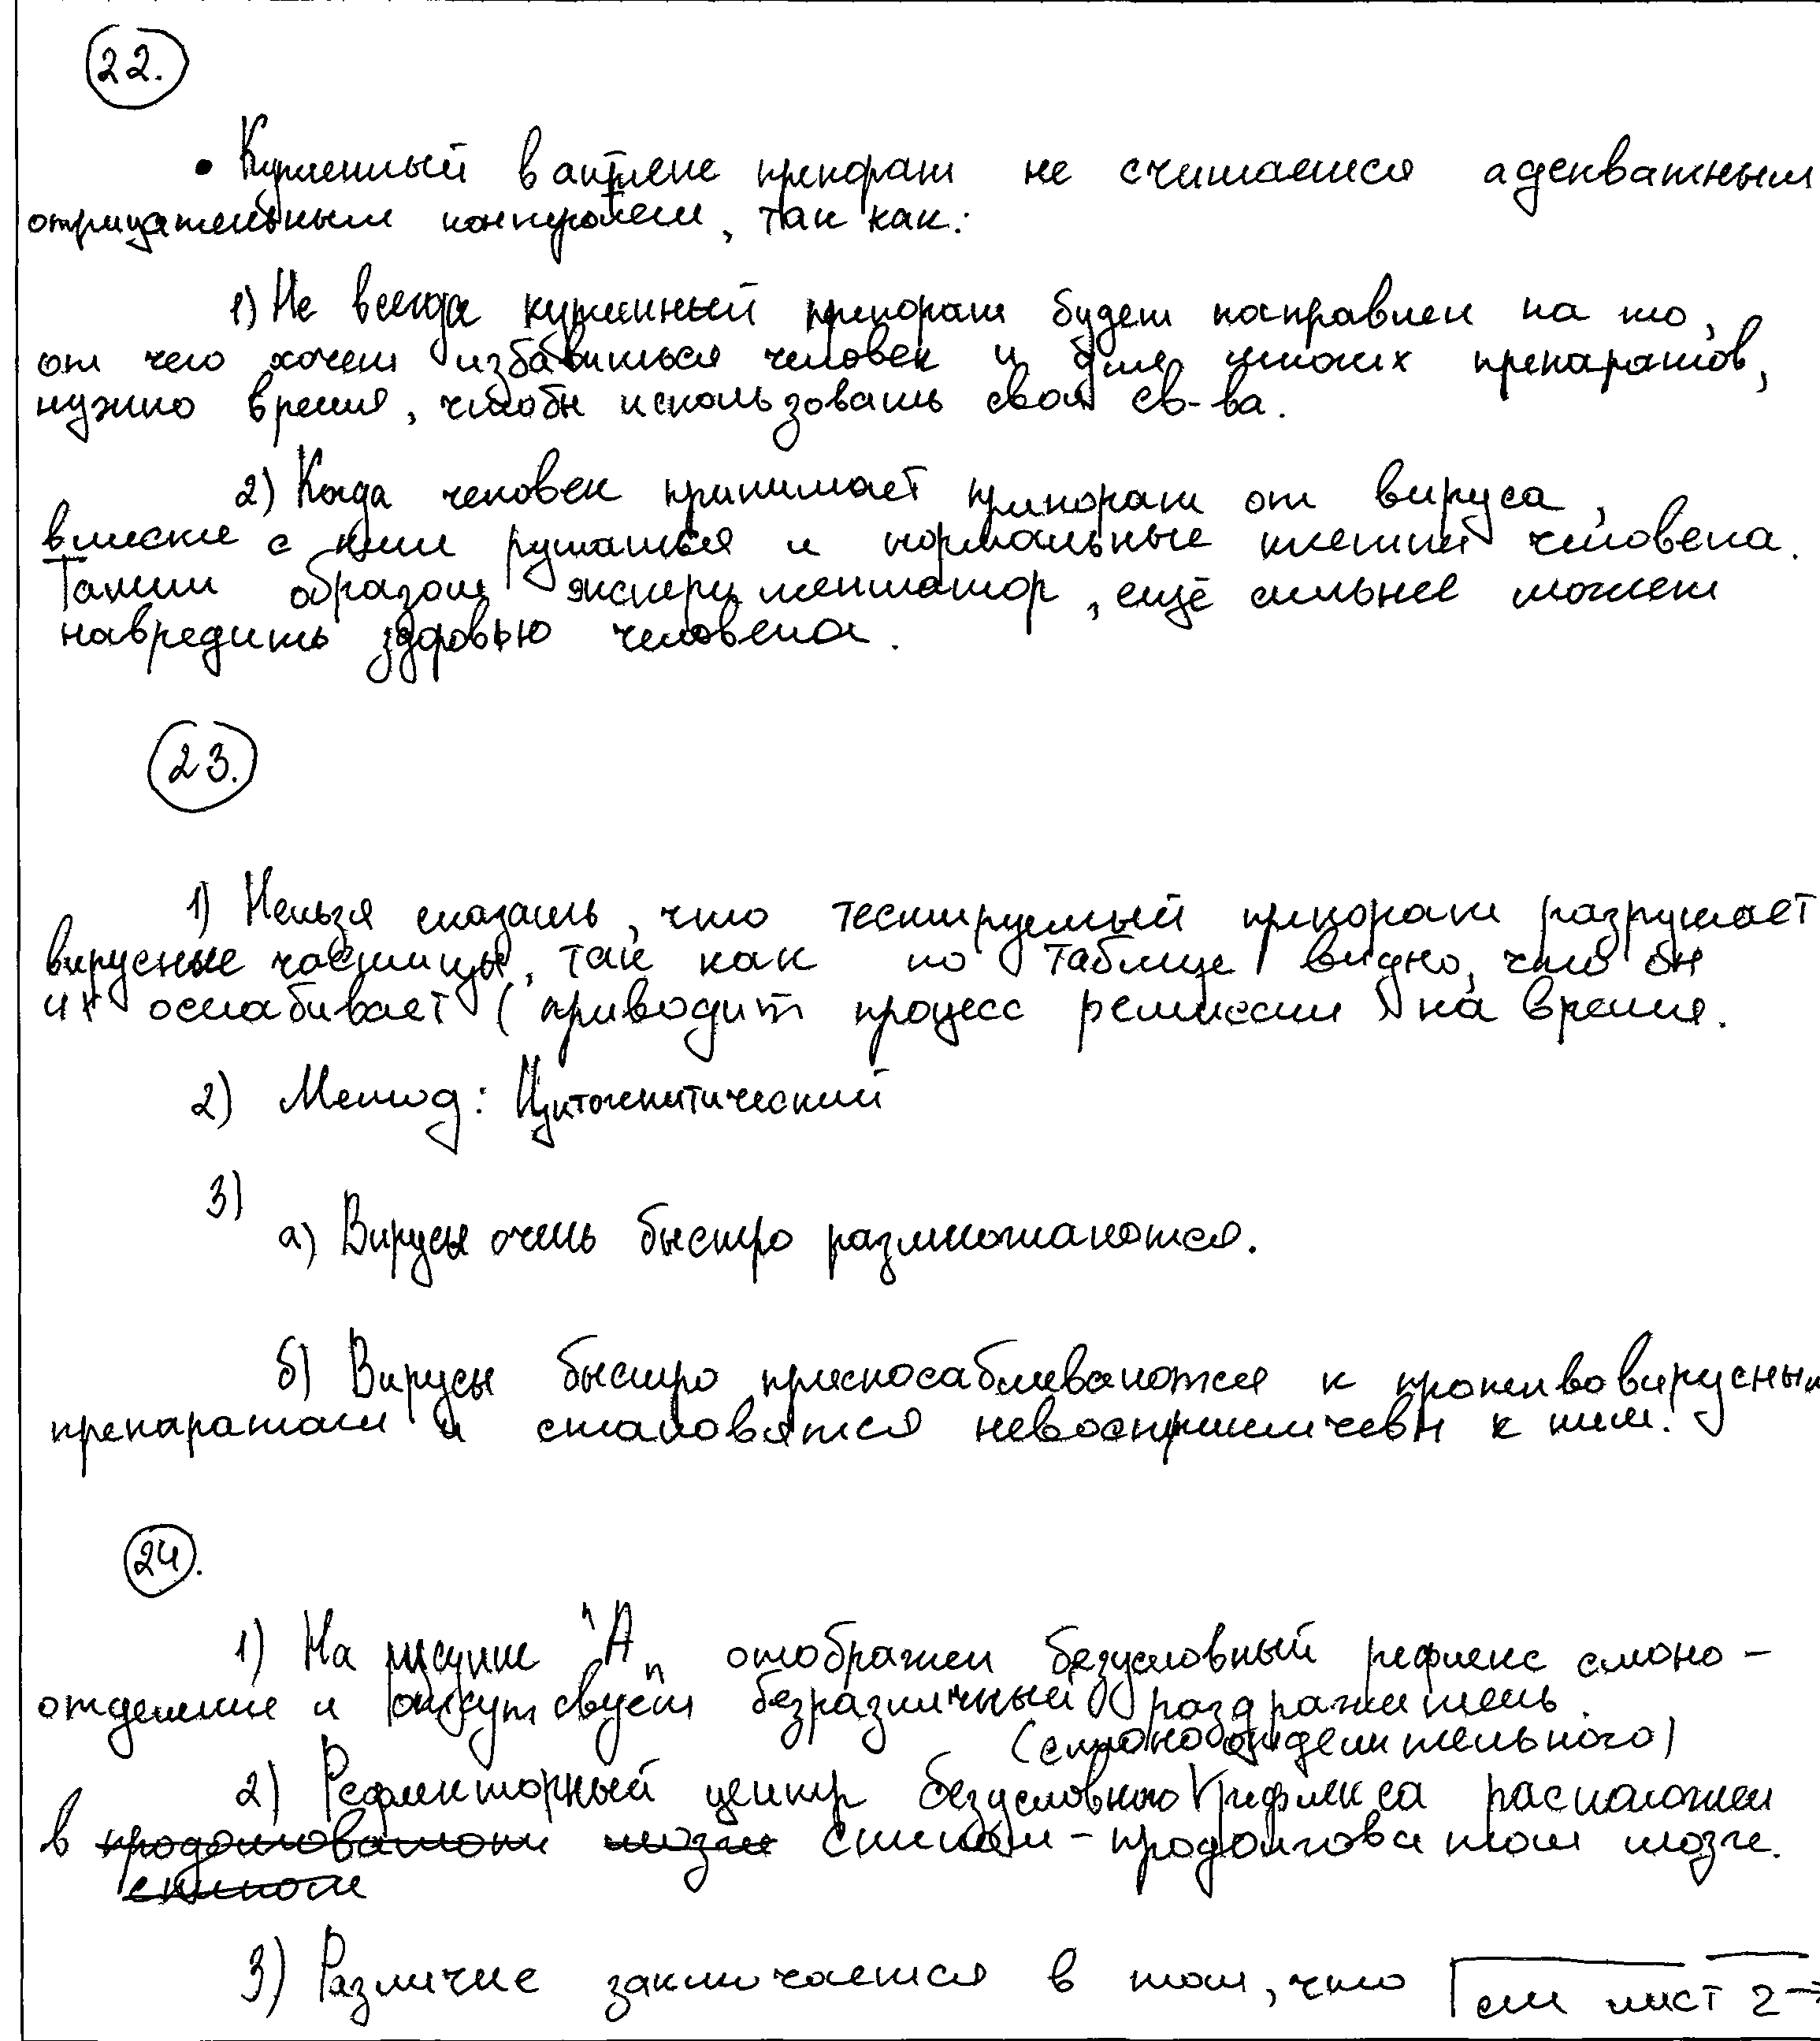 22.
• Купленный в аптеке препарат не считается адекватным
отрицательным контролем, так как:
1) Не всегда купленный препарат будет направлен на то,
от чего хочет избавиться человек и для многих препаратов,
нужно время, чтобы использовать свои св-ва.
2) Когда человек принимает препарат от вируса,
вместе с ним рушаться и нормальные клетки человека.
Таким образом экспериментатор, ещё сильнее может
навредить здоровью человека.
23.
1) Нельзя сказать, что тестируемый препарат разрушает
вирусные частицы, так как по таблице видно, что он
их ослабивает (приводит процесс ремиссии) на время.
2) Метод: Цитогенитический
3)
а) Вирусы очень быстро размножаются.
б) Вирусы быстро приспосабливаются к противовирусным
препаратам и становятся невосприимчевы к ним.
24.
1) На рисунке "А" отображен безусловный рефлекс слюно-
отделение и отсутствует безразличный раздражитель.
(слюноотделительного)
2) Рефлекторный центр безусловного рефлекса расположен
в продолговатом мозге спинном-продолговатом мозге.
спинном
3) Различие заключается в том, что см лист 2→